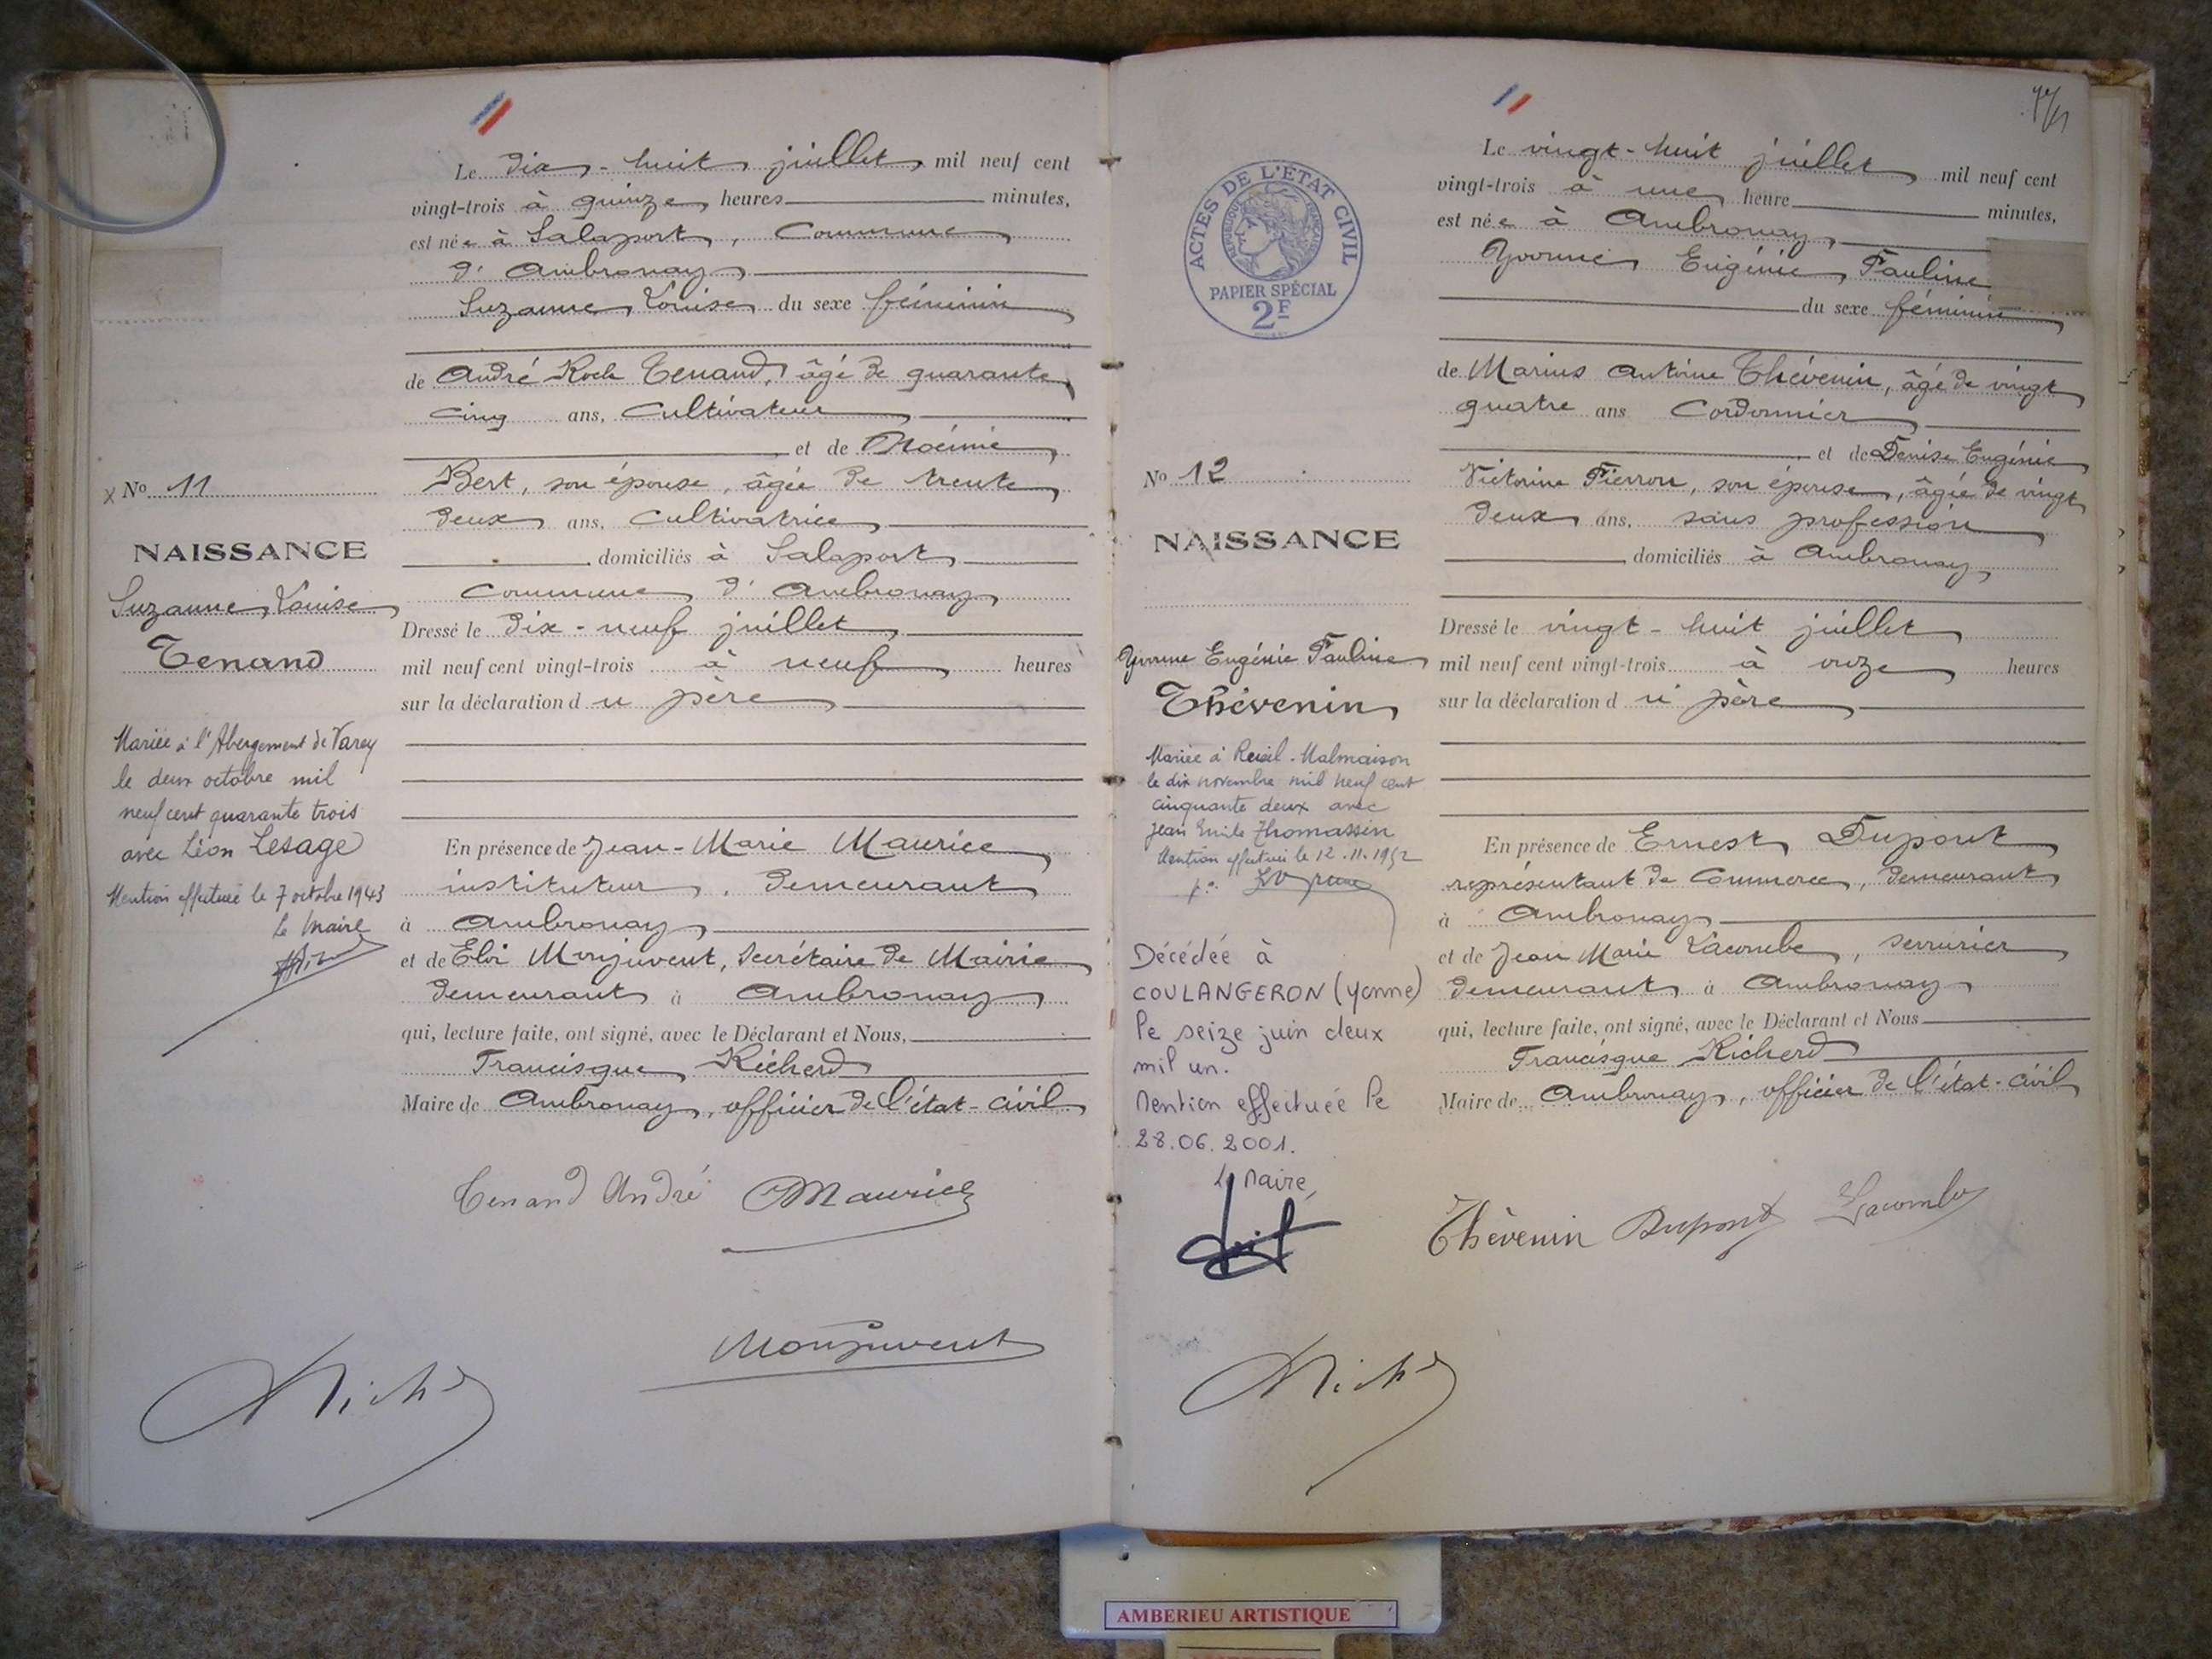 Le dix-huit juillet mil neuf cent
vingt-trois à quinze heures minutes,
est née à Salaport, Commune
d'Ambronay
Suzanne Louise du sexe féminin
de André Roch Tenand, âgé de quarante
cinq ans, Cultivateur
et de Noémie
Bert, son épouse, âgée de trente
deux ans, Cultivatrice
domiciliés à Salaport
Commune d'Ambronay
Dressé le dix-neuf juillet
mil neuf cent vingt-trois à neuf heures
sur la déclaration du père
En présence de Jean-Marie Maurice
instituteur, demeurant
à Ambronay
et de Eloi Monjuvent, Secrétaire de Mairie
demeurant à Ambronay
qui, lecture faite, ont signé, avec le Déclarant et Nous,
Francisque Richerd
Maire de Ambronay, officier de l'état-civil
Tenand André Maurice
Monjuvent
x No 11
NAISSANCE
Suzanne Louise
Tenand
Mariée à l'Abergement de Varey
le deux octobre mil
neuf cent quarante trois
avec Léon Lesage
Mention effectuée le 7 octobre 1943
Le Maire
ACTES DE L'ÉTAT CIVIL
RÉPUBLIQUE FRANÇAISE
PAPIER SPÉCIAL
2F
No 12
NAISSANCE
Yvonne Eugénie Pauline
Thévenin
Mariée à Rueil-Malmaison
le dix novembre mil neuf cent
cinquante deux avec
Jean Emile Thomassin
Mention effectuée le 12.11.1952
Décédée à
COULANGERON (Yonne)
le seize juin deux
mil un.
Mention effectuée le
28.06.2001.
Le Maire,
Le vingt-huit juillet mil neuf cent
vingt-trois à une heure minutes,
est née à Ambronay,
Yvonne Eugénie Pauline
du sexe féminin
de Marius Antoine Thévenin, âgé de vingt
quatre ans Cordonnier
et de Denise Eugénie
Victorine Pierron, son épouse, âgée de vingt
deux ans, sans profession
domiciliés à Ambronay
Dressé le vingt-huit juillet
mil neuf cent vingt-trois à onze heures
sur la déclaration du père
En présence de Ernest Dupont
représentant de Commerce, demeurant
à Ambronay
et de Jean Marie Lacombe, serrurier
demeurant à Ambronay
qui, lecture faite, ont signé, avec le Déclarant et Nous
Francisque Richerd
Maire de Ambronay, officier de l'état-civil
Thévenin Dupont Lacombe
AMBERIEU ARTISTIQUE